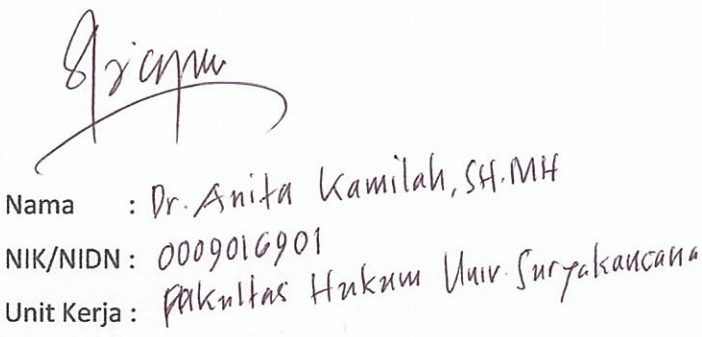 Nama : Dr. Anita Kamilah, SH.MH
NIK/NIDN : 0009016901
Unit Kerja : Fakultas Hukum Univ. Suryakancana